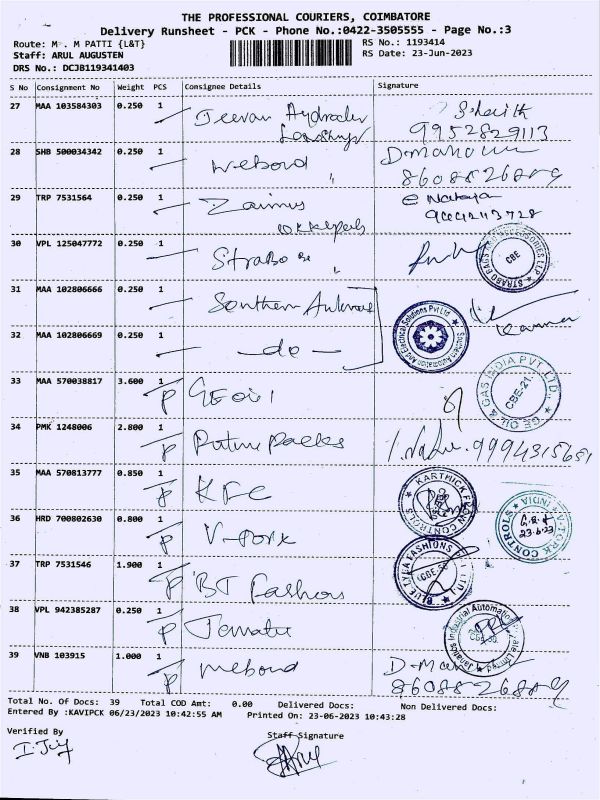 THE PROFESSIONAL COURIERS, COIMBATORE
Delivery Runsheet - PCK - Phone No.:0422-3505555 - Page No.:3
Route: M . M PATTI {L&T} RS No.: 1193414
Staff: ARUL AUGUSTEN RS Date: 23-Jun-2023
DRS No.: DCJB119341403
S No Consignment No Weight PCS Consignee Details Signature
27 MAA 103584303 0.250 1 Jeevan
9952829113
28 SHB 500034342 0.250 1 Webond
8608826889
29 TRP 7531564 0.250 1
30 VPL 125047772 0.250 1 Strabo
STRABO BAGS CBE
31 MAA 102806666 0.250 1 Southern
Southern Automation And Electrical Solutions Pvt Ltd
32 MAA 102806669 0.250 1 - do -
33 MAA 570038817 3.600 1 P GE Oil
GE OIL & GAS INDIA PVT. LTD. CBE-21.
34 PMK 1248006 2.800 1 P Future Packs 9994315651
35 MAA 570813777 0.850 1 P KFC
KARTHICK FLOW CONTROLS
36 HRD 700802630 0.800 1 P V-Tork
V-TORK CONTROLS INDIA 23.6.23
37 TRP 7531546 1.900 1 P BT Fashions
FASHIONS
38 VPL 942385287 0.250 1 P
Janatics Industrial Automation Private Limited
39 VNB 103915 1.000 1 P Mebond
8608826889
Total No. Of Docs: 39 Total COD Amt: 0.00 Delivered Docs: Non Delivered Docs:
Entered By :KAVIPCK 06/23/2023 10:42:55 AM Printed On: 23-06-2023 10:43:28
Verified By Staff Signature